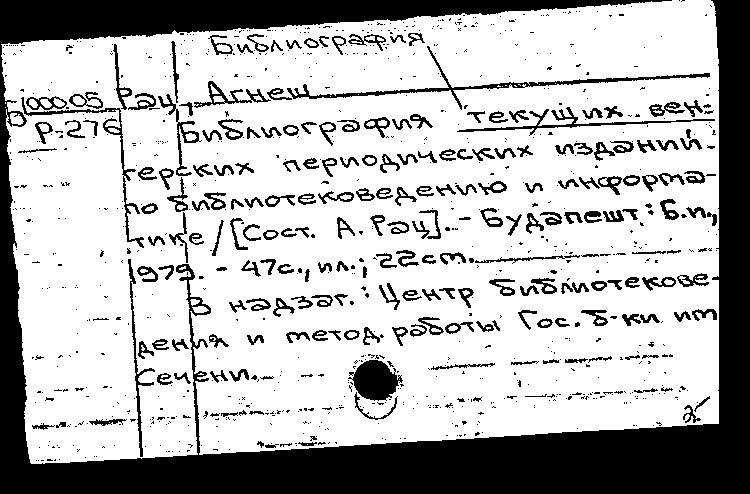 Библиография
Б1000.05 Рац, Агнеш
Р-276 Библиография текущих вен-
герских периодических изданий
по библиотековедению и информа-
тике / [Сост. А. Рац]. - Будапешт: Б.и.,
1979. - 47с., ил.; 22 cm.
В надзаг.: Центр библиотекове-
дения и метод. работы Гос. б-ки им
Сечени.
2